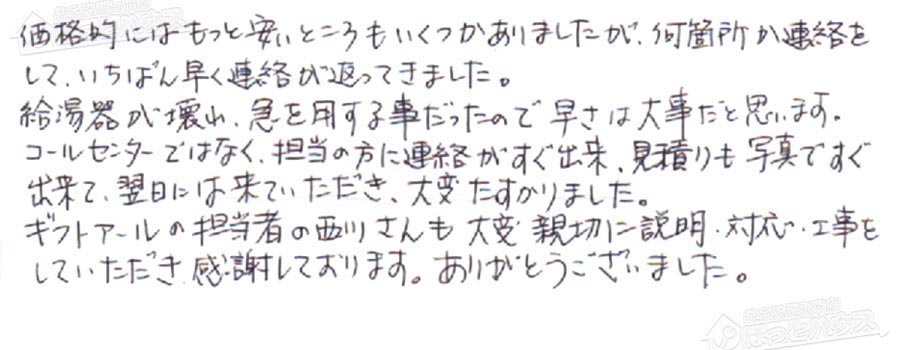 価格的にはもっと安いところもいくつかありましたが、何箇所か連絡を
して、いちばん早く連絡が返ってきました。
給湯器が壊れ、急を用する事だったので早さは大事だと思います。
コールセンターではなく、担当の方に連絡がすぐ出来、見積りも写真ですぐ
出来て、翌日には来ていただき、大変たすかりました。
ギフトアールの担当者の西川さんも大変親切に説明・対応・工事を
していただき感謝しております。ありがとうございました。
ほっとハウス